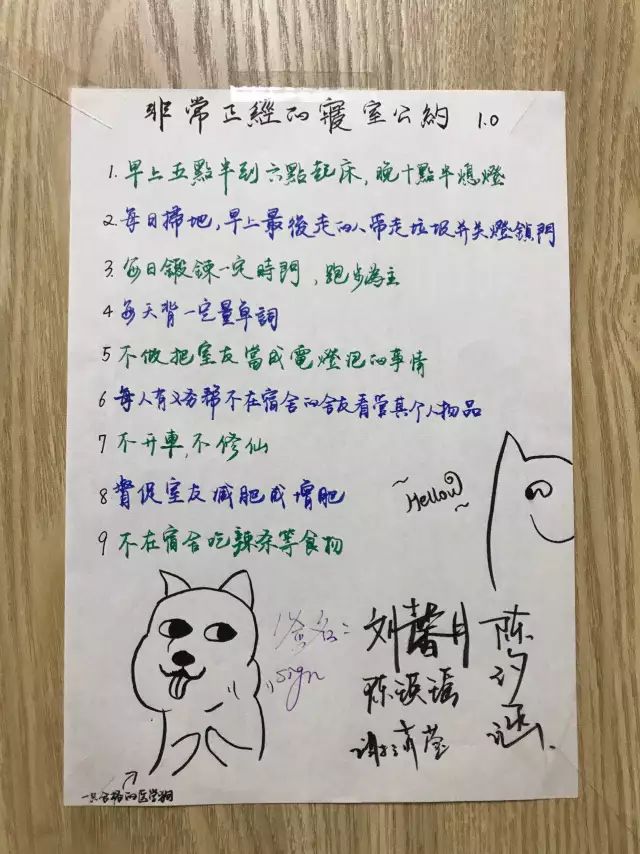 非常正經的寢室公約 1.0
1. 早上五點半到六點起床,晚十點半熄燈
2. 每日掃地,早上最後走的人帶走垃圾并关燈鎖門
3. 每日鍛鍊一定時間,跑步為主
4 每天背一定量单詞
5 不做把室友當成電燈泡的事情
6 每人有义务幫不在宿舍的舍友看管其个人物品
7 不开車,不修仙
8 督促室友减肥或增肥
9 不在宿舍吃辣条等食物
~Hellow~
签名:
sign
刘馨月
陈汐涵
陈瑛瑶
谢清莹
一只合格的医学狗